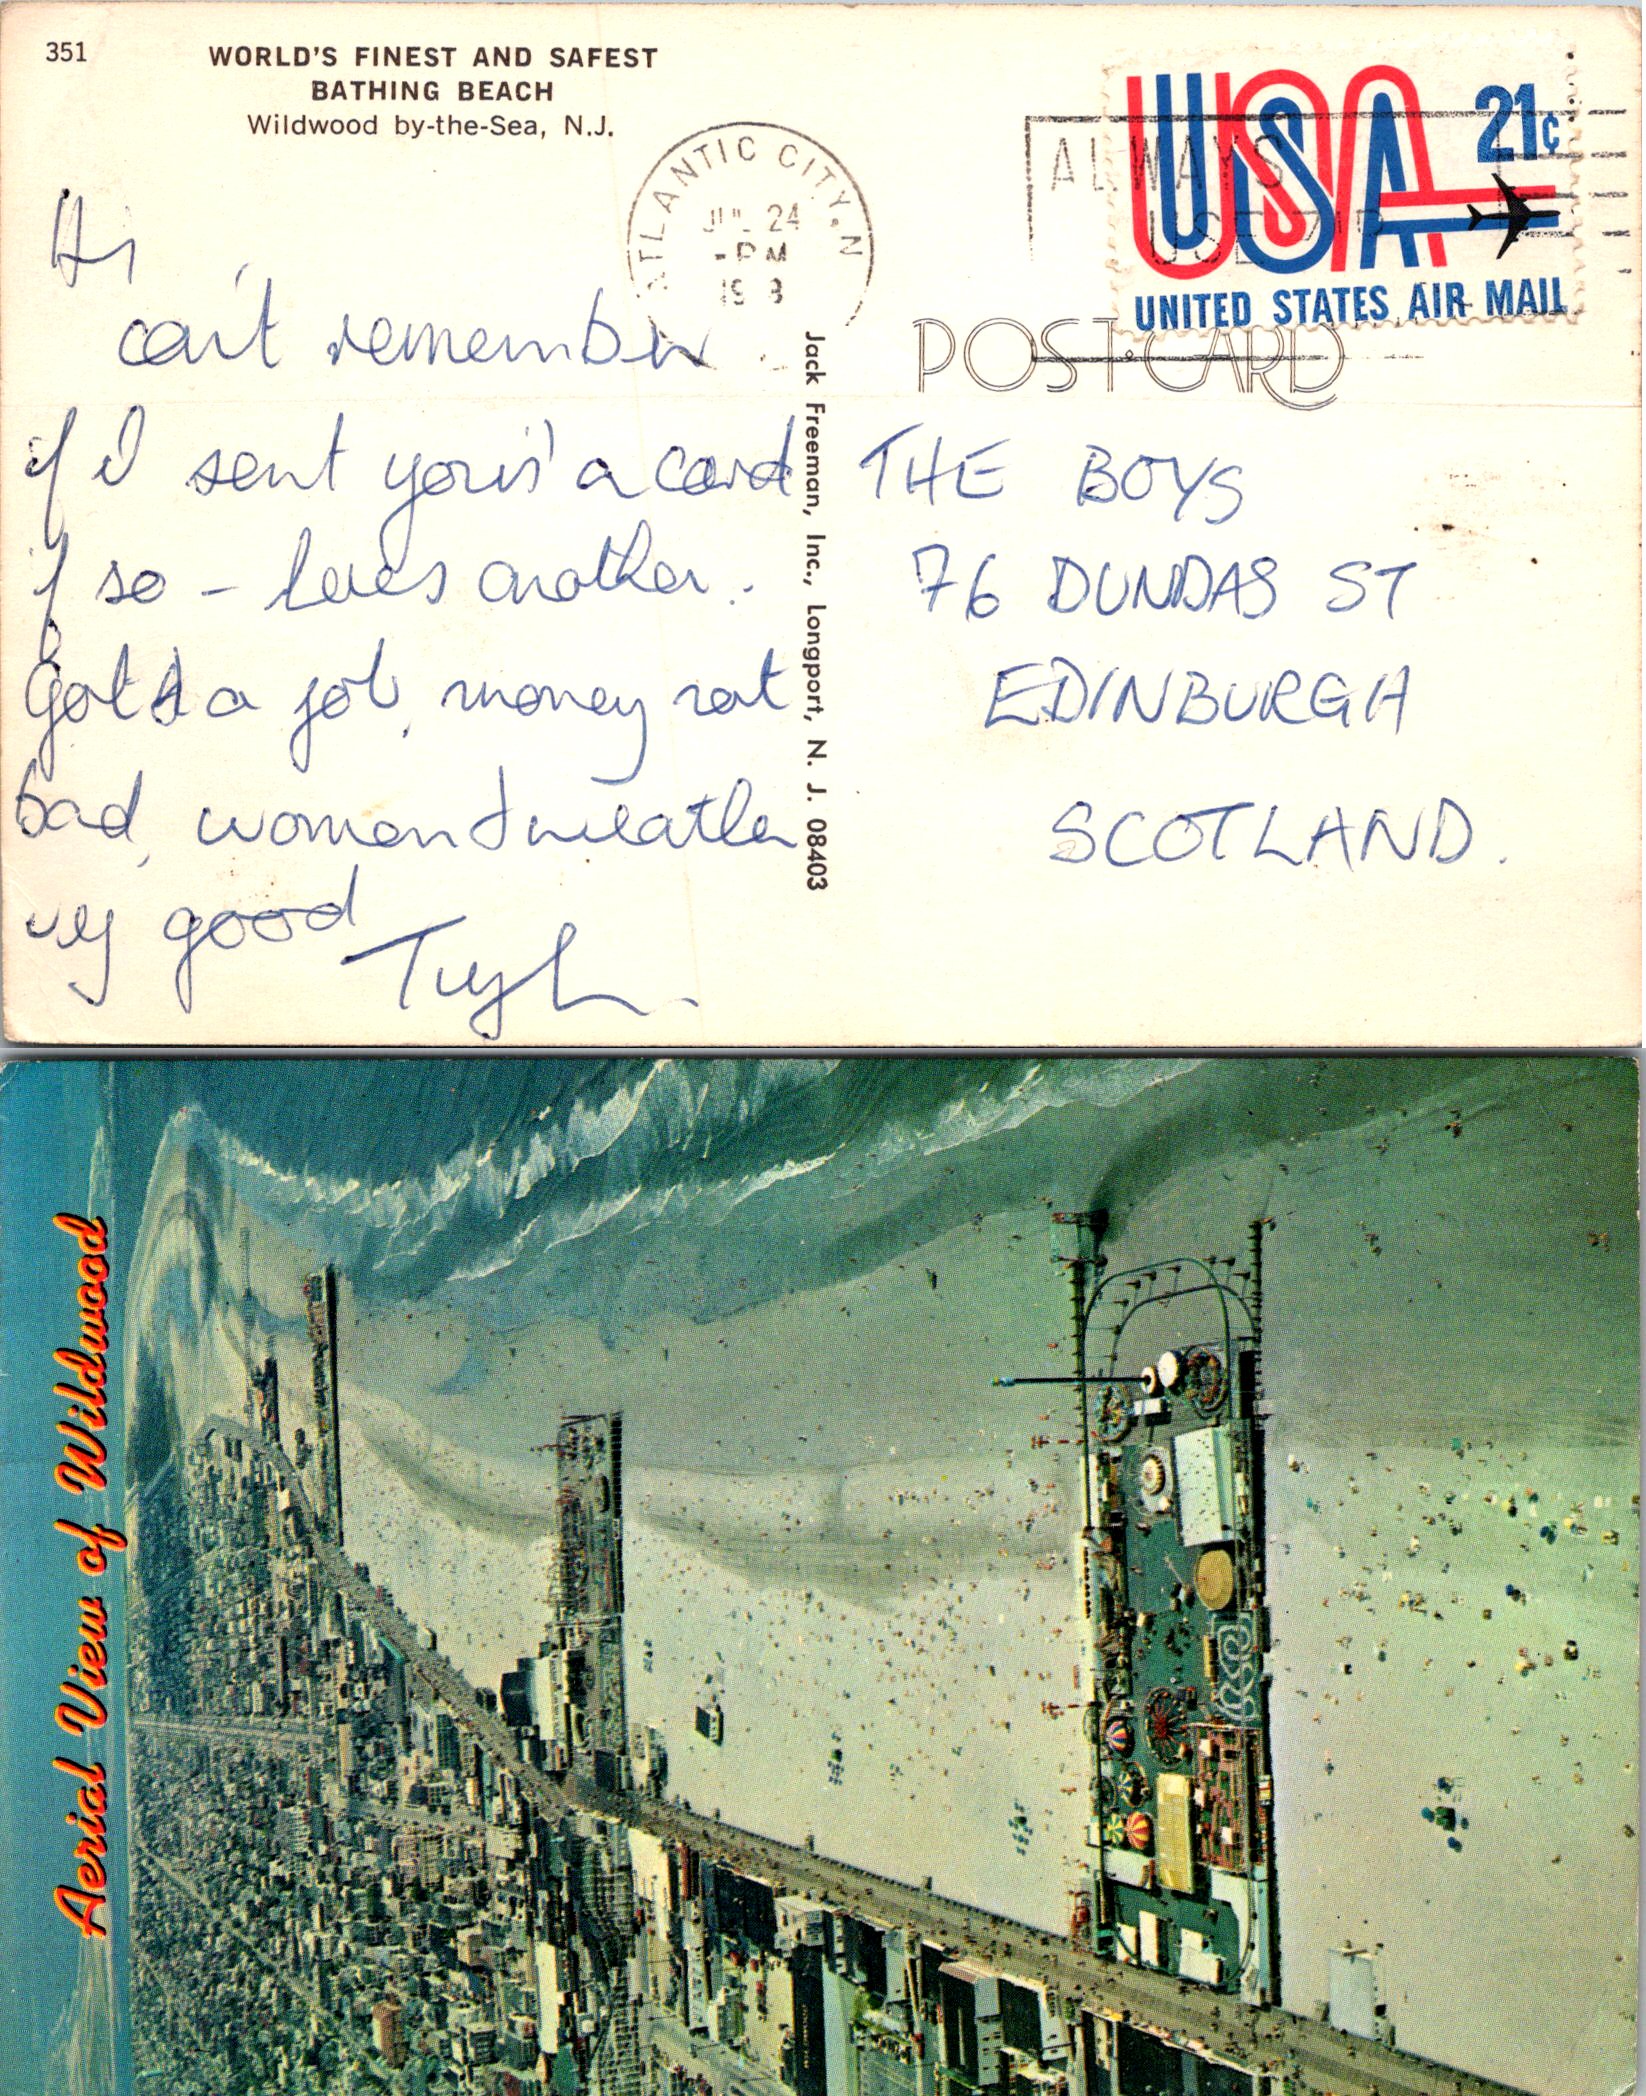 351
WORLD'S FINEST AND SAFEST
BATHING BEACH
Wildwood by-the-Sea, N.J.
ATLANTIC CITY, N
JUL 24
PM
ALWAYS
USE ZIP
USA 21¢
UNITED STATES AIR MAIL
POST CARD
Jack Freeman, Inc., Longport, N. J. 08403
Hi
can't remember
if I sent a card
if so - another.
Gotta a job, money not
bad, women & weather
vy good
THE BOYS
76 DUNDAS ST
EDINBURGH
SCOTLAND.
Aerial View of Wildwood